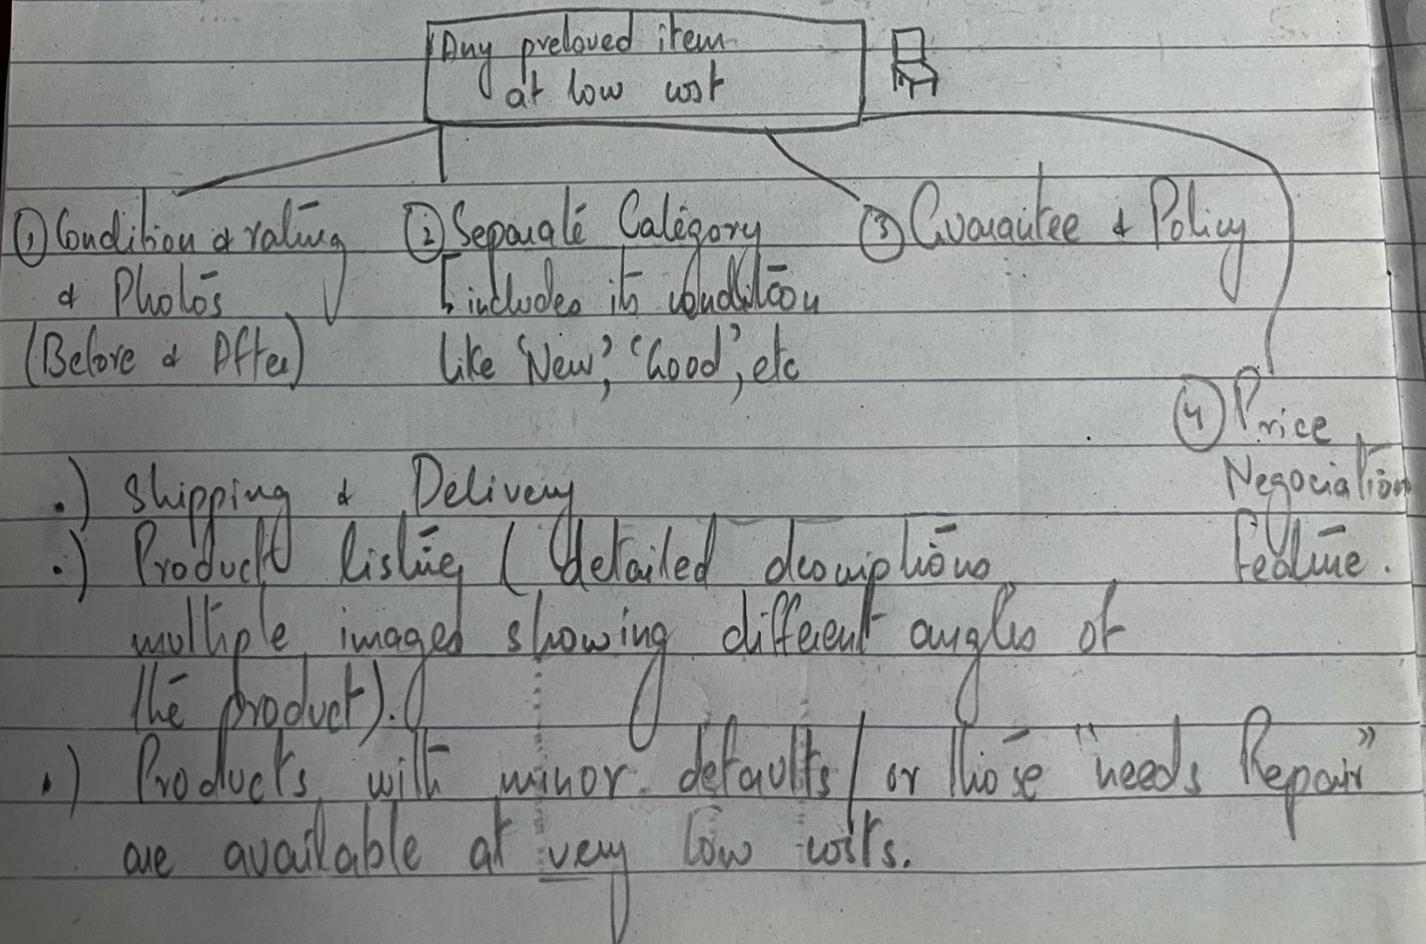 Any preloved item
at low cost
① Condition & rating
& Photos
(Before & After)
② Separate Category
includes its condition
like 'New', 'Good', etc
③ Guarantee & Policy
④ Price
Negociation
Feature.
.) Shipping & Delivery
.) Product listing (detailed descriptions
multiple images showing different angles of
the product).
.) Products with minor defaults / or those "needs Repair"
are available at very low costs.